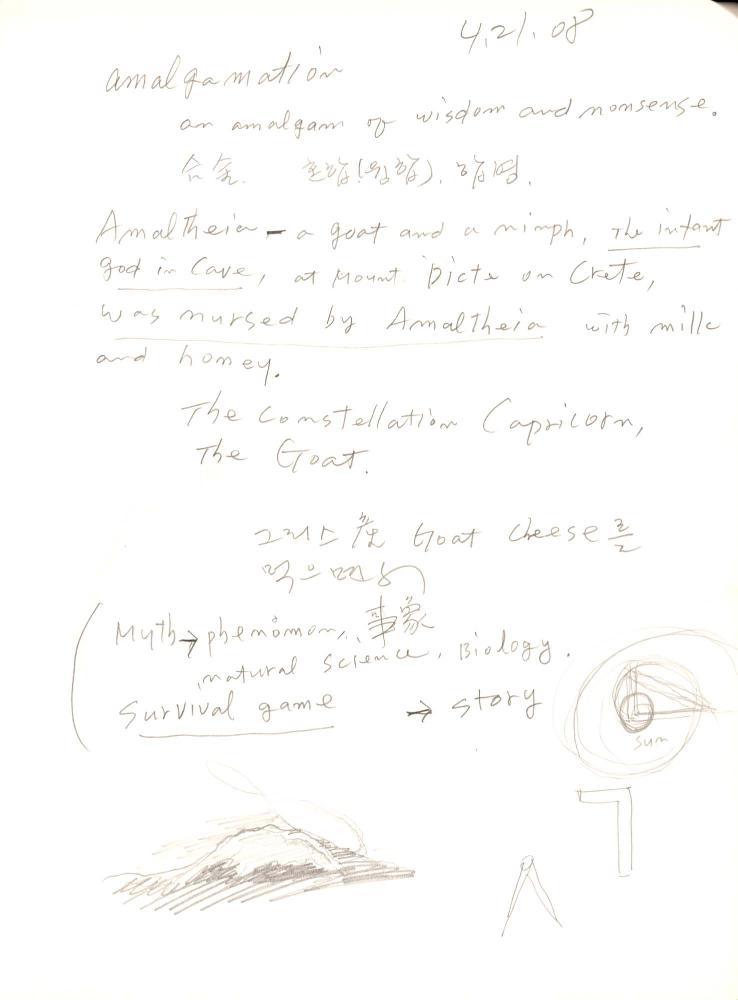 4.21.08
amalgamation
an amalgam of wisdom and nonsense.
合金. 혼합(융합), 합병.
Amaltheia - a goat and a nimph, The infant
god in Cave, at Mount Dicte on Crete,
was nursed by Amaltheia with milk
and honey.
The Constellation Capricorn,
The Goat.
그리스産 Goat cheese를
먹으면서
Myth → phenomon, 事象
natural science, Biology.
Survival game → story
sun